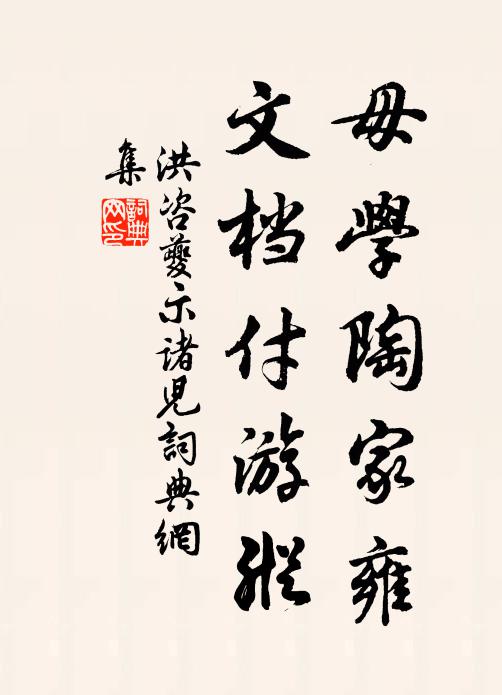 毋學陶家雍
文档付游縱
洪咨夔示諸兒詞典網
集
詞典
网印